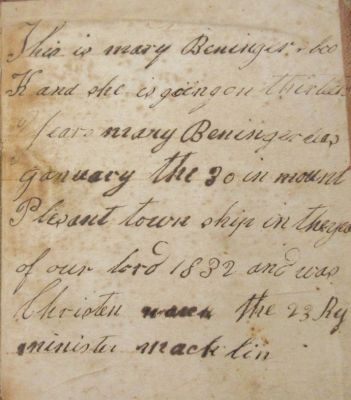 This is mary Beninger boo
K and she is going on thirteen
years mary Beninger was
January the 30 in mount
Plesant town ship in the year
of our lord 1832 and was
Christen the 23 By
minister macklin